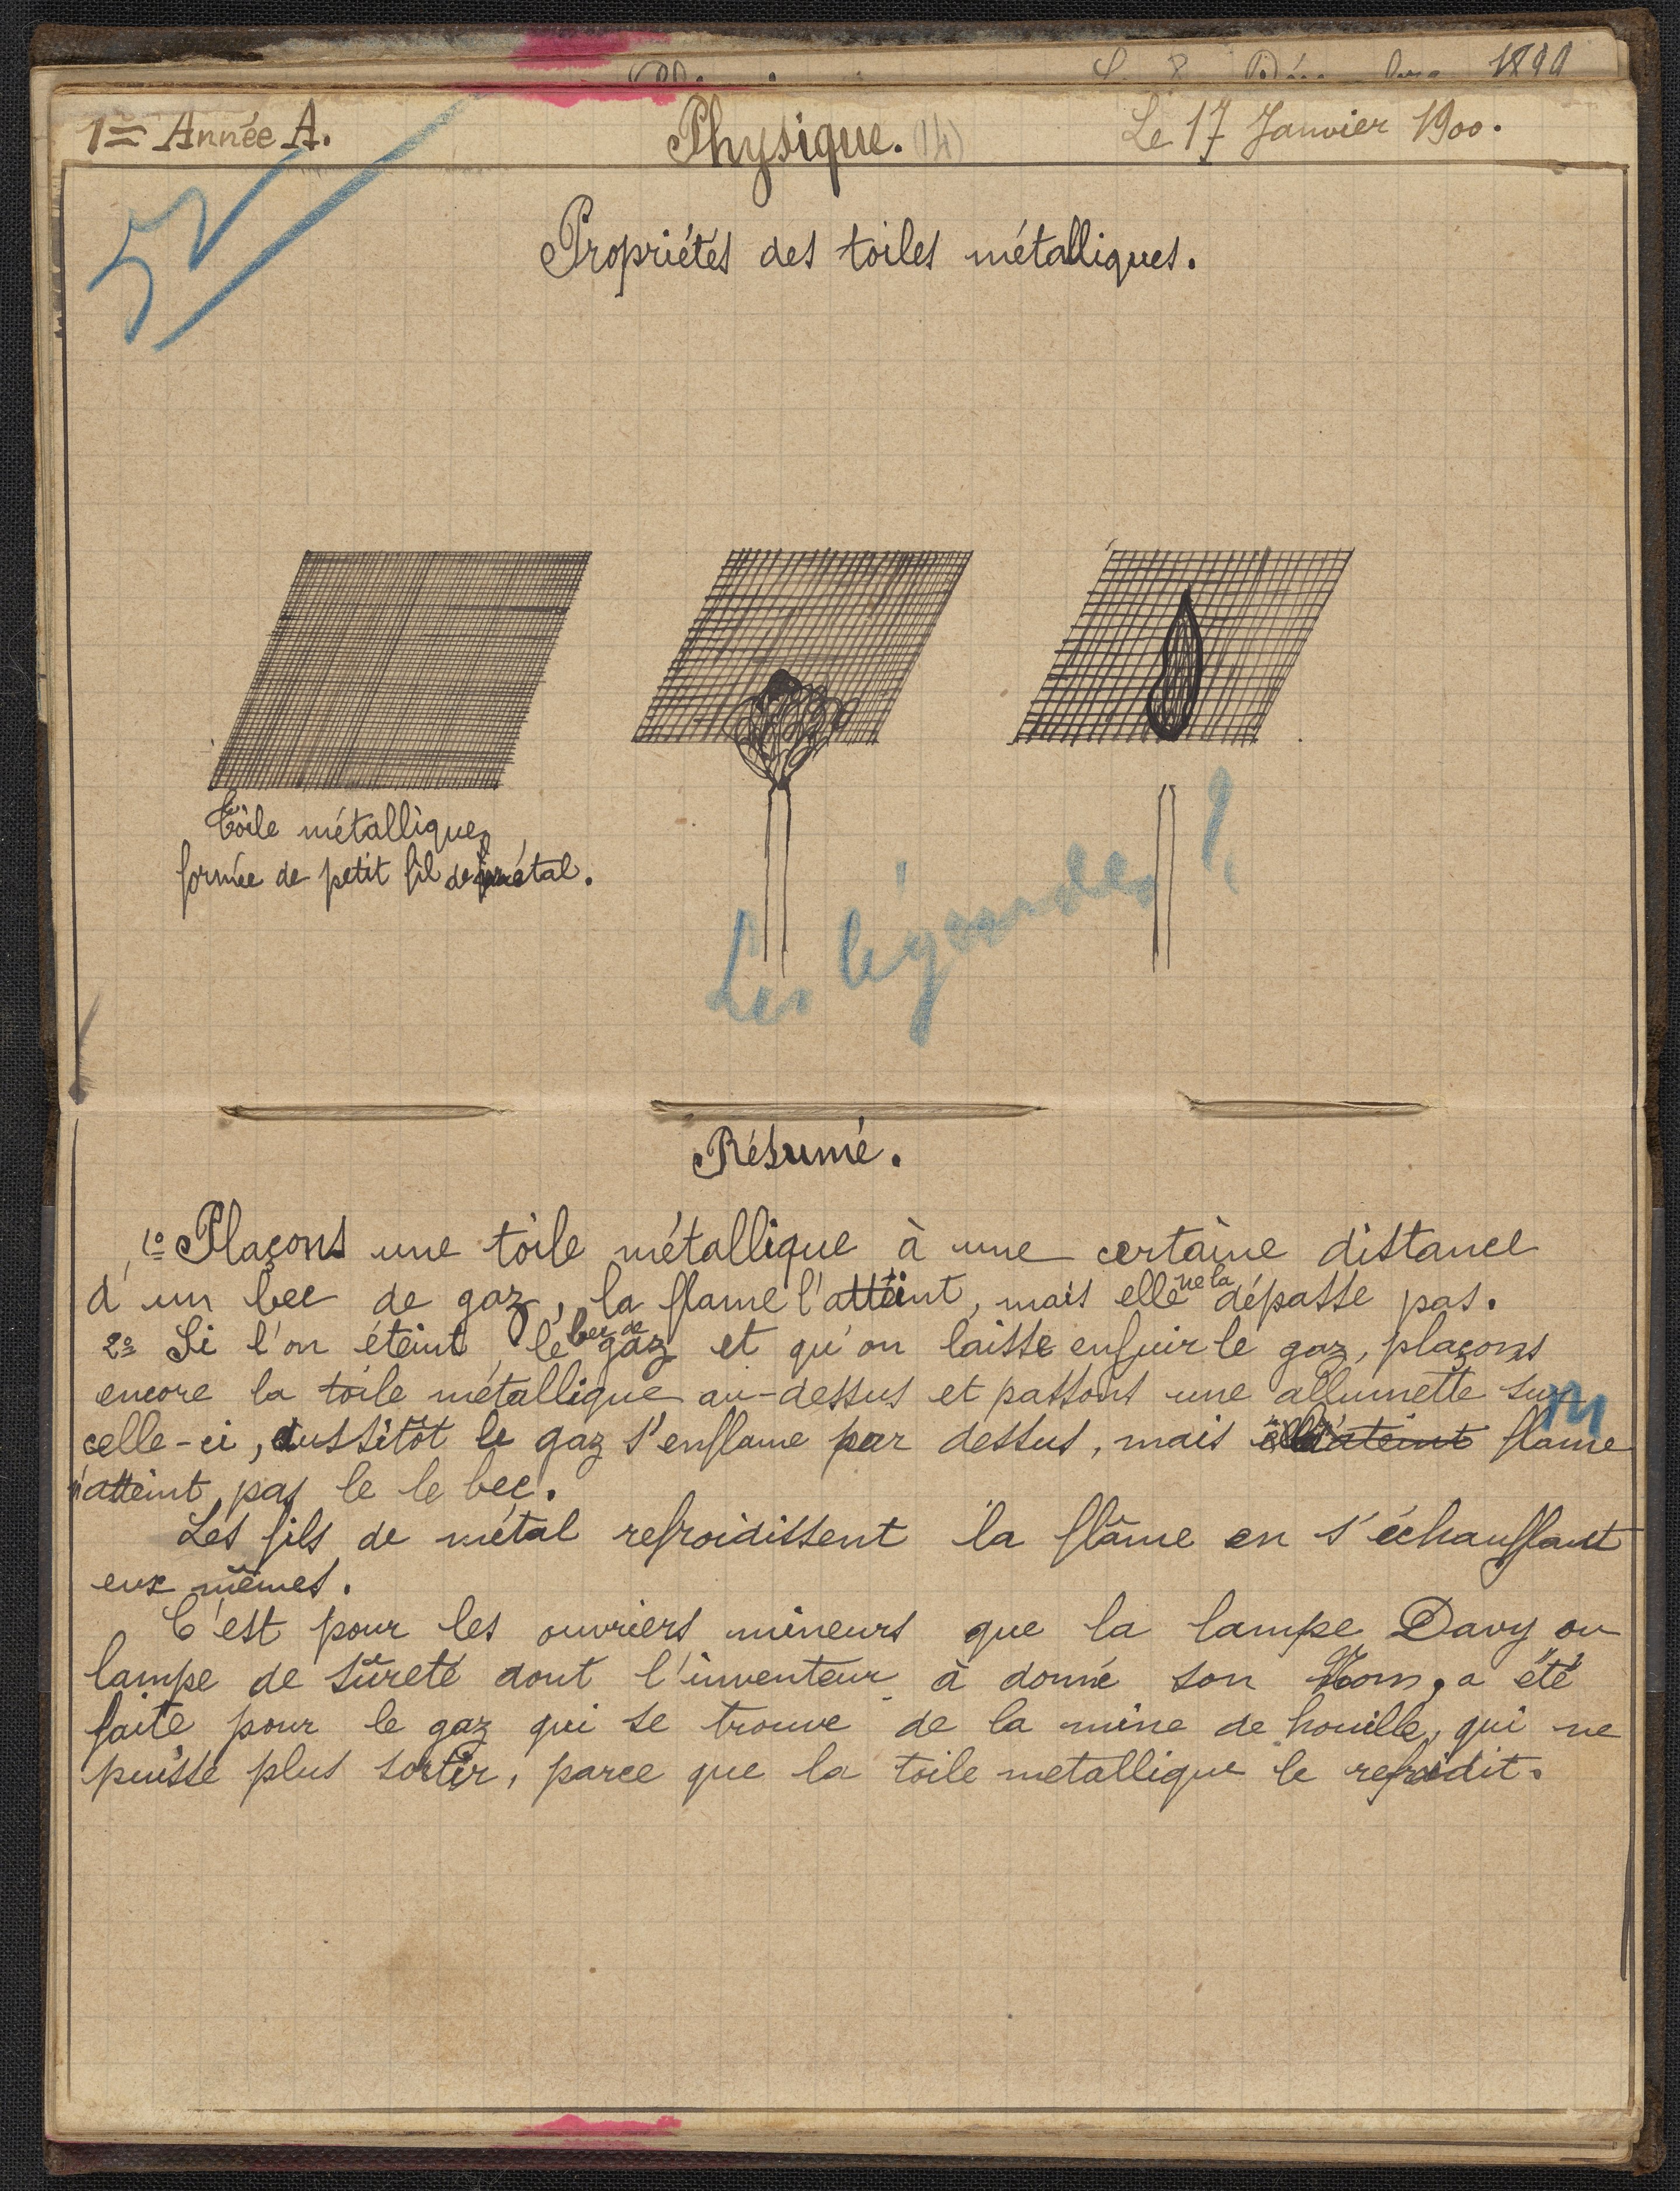 1899
1re Année A.
Physique. (14)
Le 17 Janvier 1900.
52
Propriétés des toiles métalliques.
Toile métallique,
formée de petit fil de métal.
Les légendes ?
Résumé.
1o Plaçons une toile métallique à une certaine distance
d'un bec de gaz, la flame l'atteint, mais elle ne la dépasse pas.
2o Si l'on éteint le bec de gaz et qu'on laisse enfuir le gaz, plaçons
encore la toile métallique au-dessus et passons une allumette sur
celle-ci, aussitôt le gaz s'enflame par dessus, mais flame
n'atteint pas le le bec.
Les fils de métal refroidissent la flâme en s'échauffant
eux mêmes.
C'est pour les ouvriers mineurs que la lampe Davy ou
lampe de sûreté dont l'inventeur à donné son Nom, a été
faite pour le gaz qui se trouve de la mine de houille, qui ne
puisse plus sortir, parce que la toile metallique le refroidit.